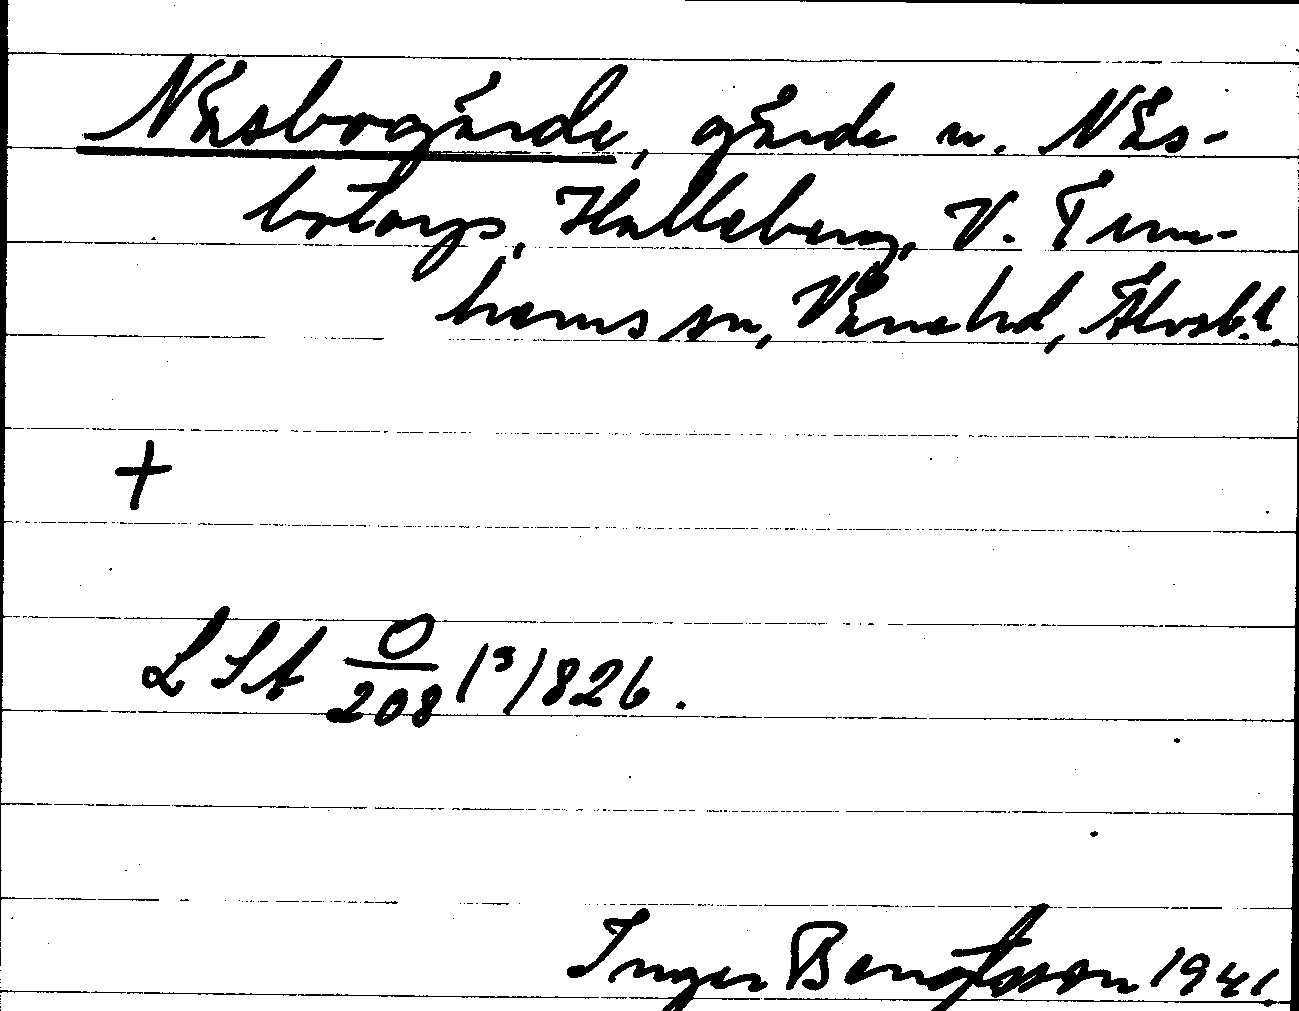 Näsbogärde, gärde u. Näs-
botorp, Halleberg, V. Tun-
hems sn, Väne hd, Älvsb.l.
+
LSA O/208 1³/1826.
Inger Bengtsson 1941.